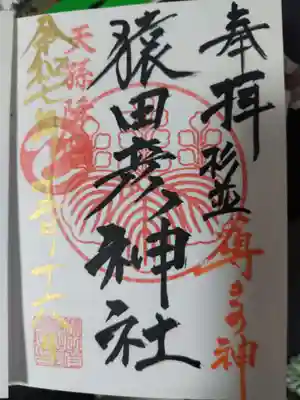 奉拝
杉並
導きの神
猿田彦神社
天孫降
令和七年
十六日